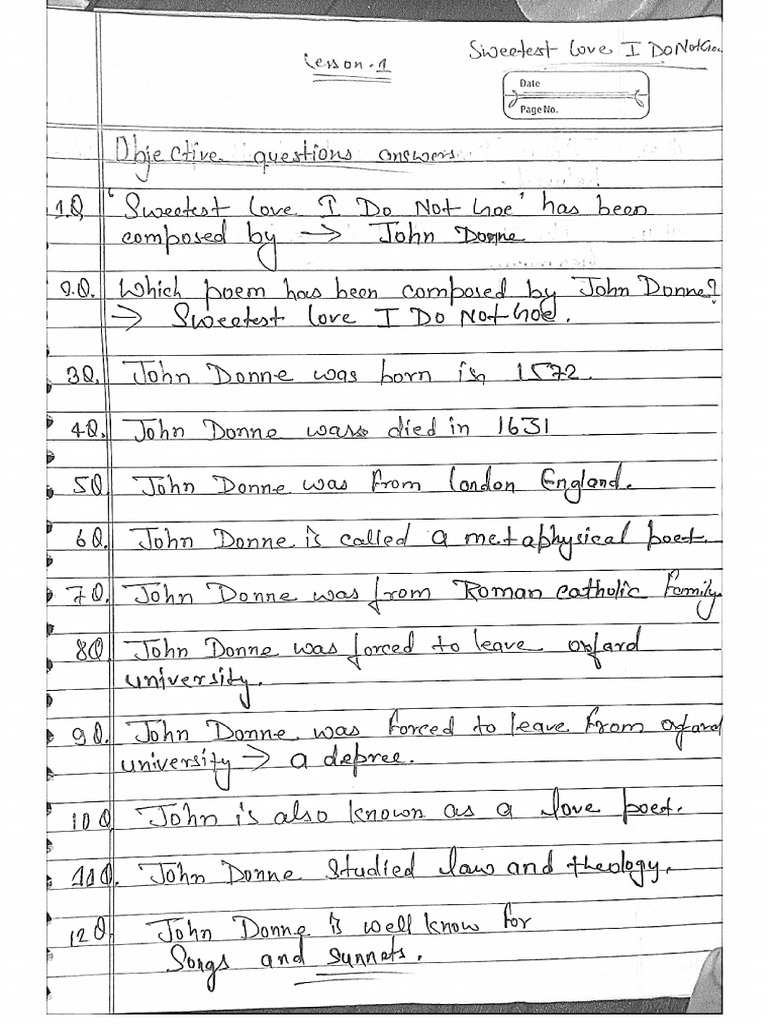 Lesson. 1
Sweetest Love I Do Not Goe
Date
Page No.
Objective questions answers.
1Q. 'Sweetest Love I Do Not Goe' has been
composed by → John Donne
2.Q. Which poem has been composed by John Donne?
→ Sweetest Love I Do Not Goe.
3Q. John Donne was born in 1572.
4Q. John Donne was died in 1631
5Q. John Donne was from London England.
6Q. John Donne is called a metaphysical poet.
7Q. John Donne was from Roman catholic family.
8Q John Donne was forced to leave oxfard
university.
9Q. John Donne was forced to leave from oxfard
university → a depree.
10Q John is also known as a love poet.
11Q. John Donne Studied law and theology.
12Q. John Donne is well know for
Songs and sunnets.